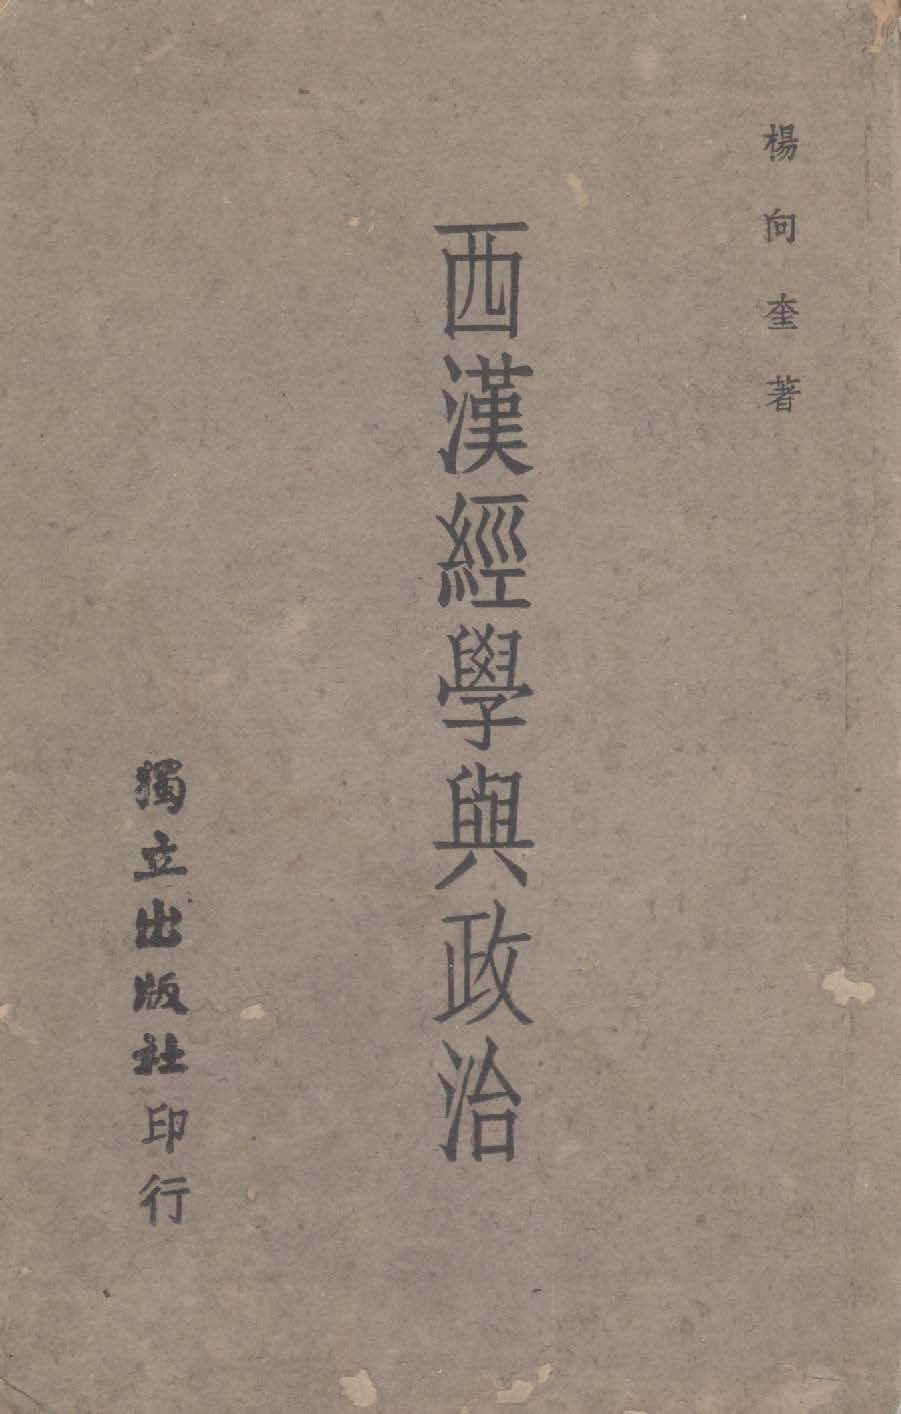 楊向奎著
西漢經學與政治
獨立出版社印行